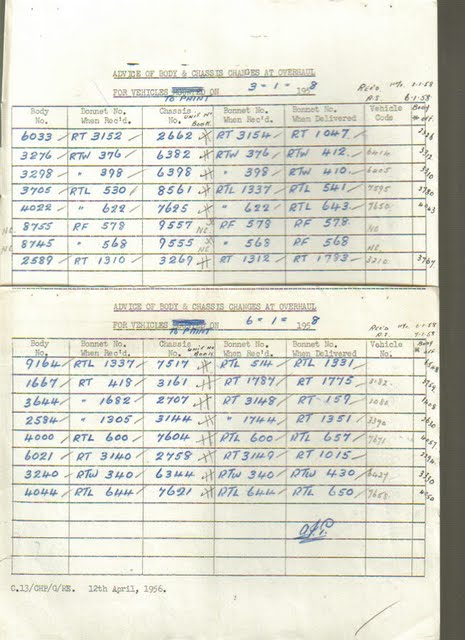 ADVICE OF BODY & CHASSIS CHANGES AT OVERHAUL
FOR VEHICLES ON 3-1- 1958
TO PAINT
Rec'd 6-1-58
Body No. Bonnet No. When Rec'd. Chassis No. UNIT No BOOK Bonnet No. When Rec'd. Bonnet No. When Delivered Vehicle Code Body off
6033 RT 3152 2662 RT 3154 RT 1047
3276 RTW 376 6382 RTW 376 RTW 412 6414
3298 " 398 6398 " 398 RTW 410 6005
3705 RTL 530 8561 RTL 1337 RTL 541 7595
4022 " 622 7625 " 622 RTL 643 7650
NE 8755 RF 578 9557 NE RF 578 RF 578 NE
NE 8745 " 568 9555 NE " 568 RF 568 NE
2589 RT 1310 3269 RT 1312 RT 1793 3210 3767
ADVICE OF BODY & CHASSIS CHANGES AT OVERHAUL
FOR VEHICLES ON 6-1- 1958
TO PAINT
Rec'd 7-1-58
Body No. Bonnet No. When Rec'd. Chassis No. UNIT No BOOK Bonnet No. When Rec'd. Bonnet No. When Delivered Vehicle No. Body off
9164 RTL 1337 7517 RTL 514 RTL 1331
1667 RT 418 3161 RT 1787 RT 1775 3182
3644 " 1682 2707 RT 3148 RT 159
2584 " 1305 3144 " 1744 RT 1351 3390
4000 RTL 600 7604 RTL 600 RTL 657 7671
6021 RT 3140 2758 RT 3149 RT 1015
3240 RTW 340 6344 RTW 340 RTW 430 6427
4044 RTL 644 7621 RTL 644 RTL 650 7658
C.13/CHP/G/KE. 12th April, 1956.